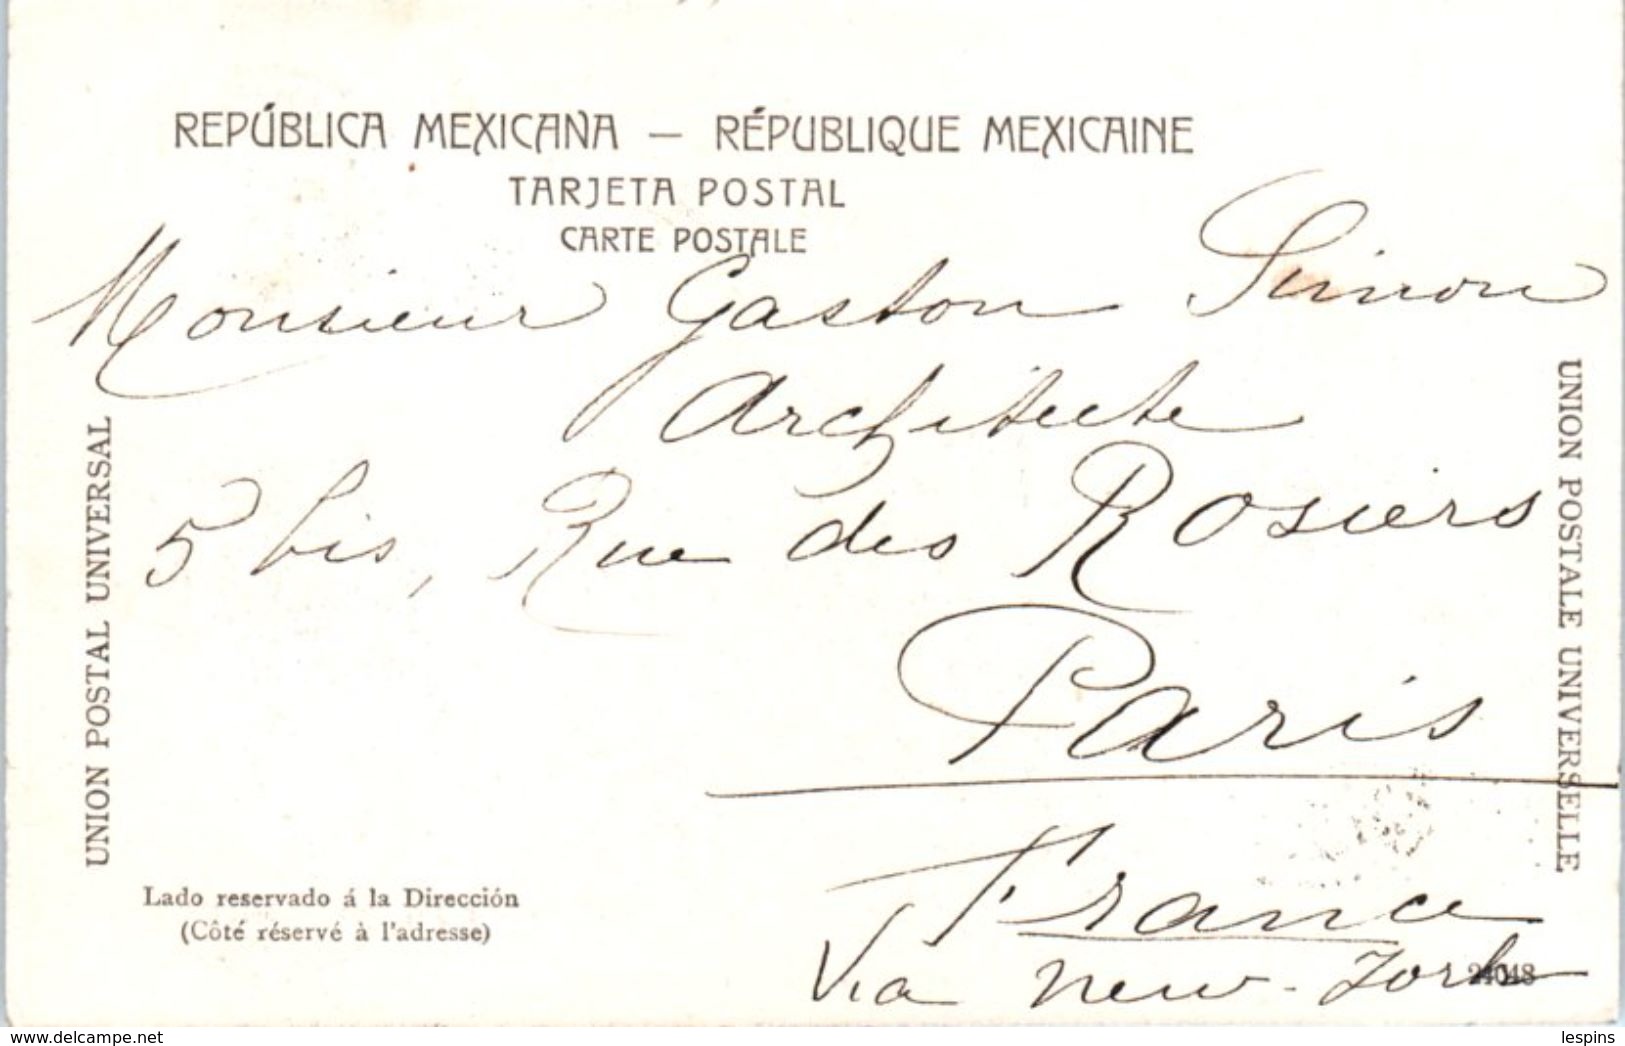 REPÚBLICA MEXICANA — RÉPUBLIQUE MEXICAINE
TARJETA POSTAL
CARTE POSTALE
Monsieur Gaston Simon
Architecte
5 bis, Rue des Rosiers
Paris
France
Via New-York
UNION POSTAL UNIVERSAL
UNION POSTALE UNIVERSELLE
Lado reservado á la Dirección
(Côté réservé à l'adresse)
24048
delcampe.net
lespins